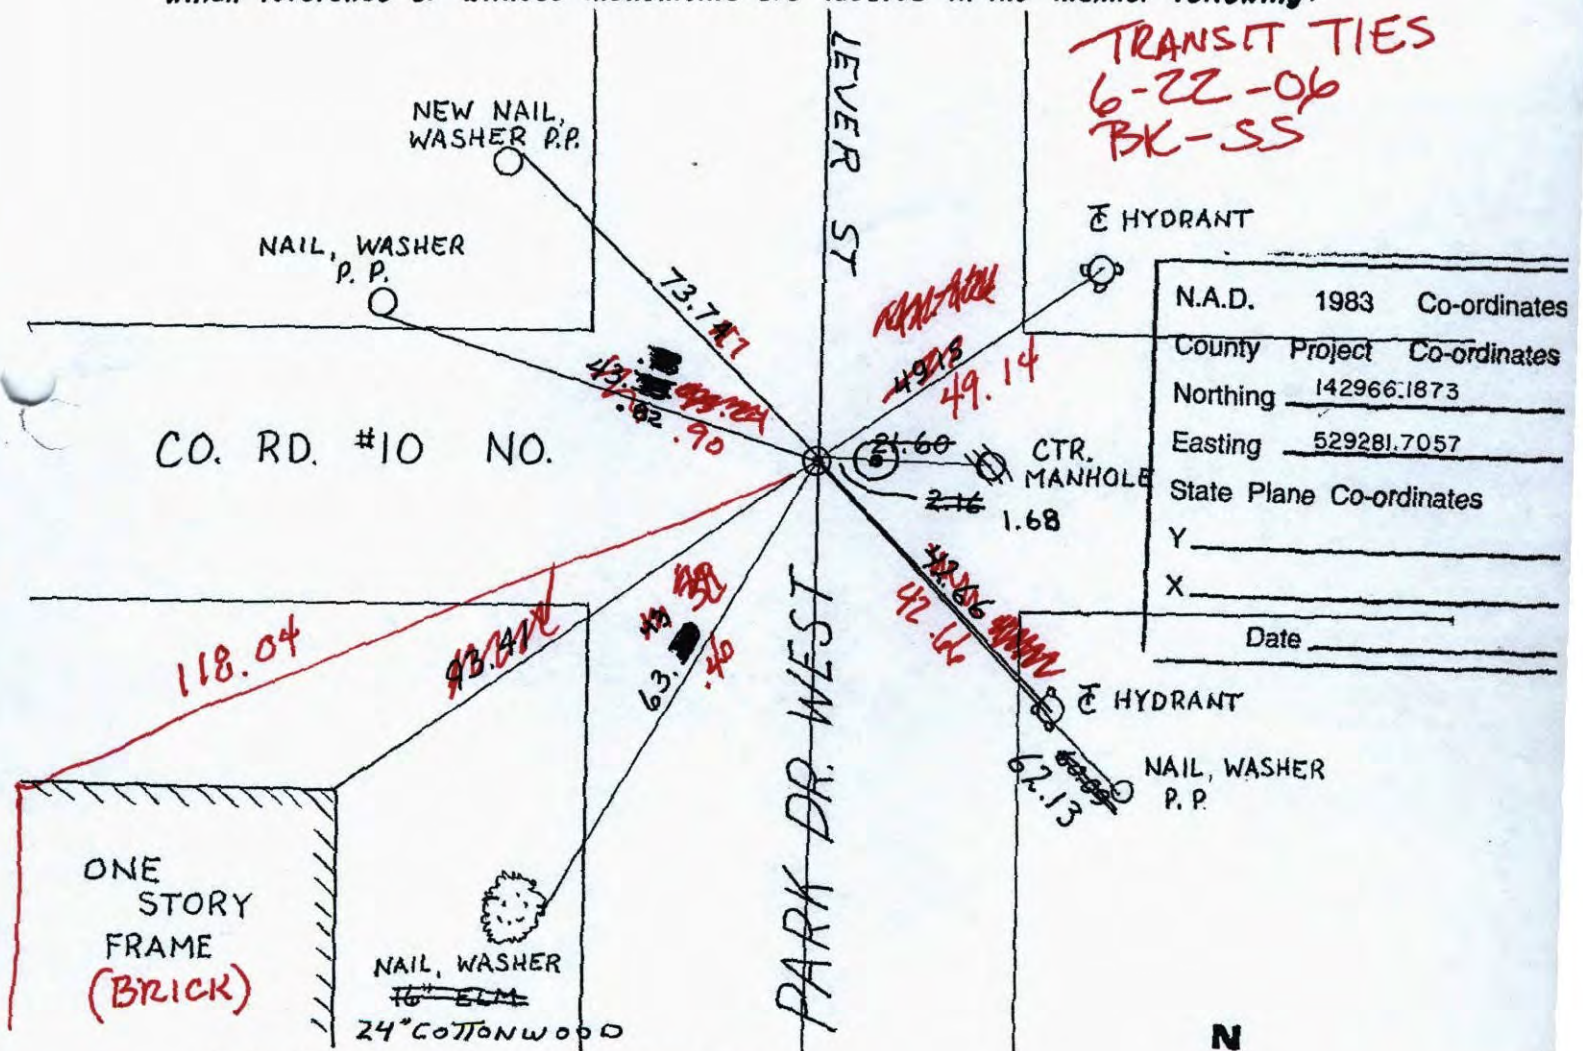 TRANSIT TIES
6-22-06
BK-SS
LEVER ST
NEW NAIL,
WASHER P.P.
NAIL, WASHER
P. P.
HYDRANT
N.A.D. 1983 Co-ordinates
County Project Co-ordinates
Northing 142966.1873
Easting 529281.7057
State Plane Co-ordinates
Y
X
Date
73.7
49.14
.82
.90
CO. RD. #10 NO.
21.60
CTR.
MANHOLE
2.16
1.68
42.66
118.04
93.41
63.
.40
PARK DR. WEST
HYDRANT
NAIL, WASHER
P.P.
62.13
ONE
STORY
FRAME
(BRICK)
NAIL, WASHER
16" ELM
24" COTTONWOOD
N